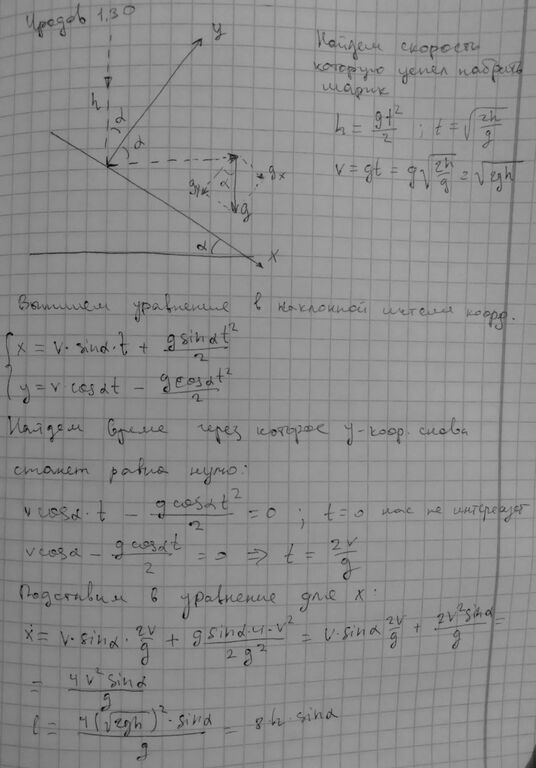 Иродов 1.30
y
h
α
α
g_y
α
g_x
g
α
x
Найдем скорость
которую успел набрать
шарик
h = gt²/2 ; t = √(2h/g)
v = gt = g√(2h/g) = √(2gh)
Выпишем уравнение в наклонной системе коорд.
{ x = v·sinα·t + g sinα t²/2
{ y = v·cosα t − g cosα t²/2
Найдем время через которое y-коор. снова
станет равна нулю:
v cosα·t − g cosα t²/2 = 0 ; t=0 нас не интересует
v cosα − g cosα t/2 = 0 ⇒ t = 2v/g
Подставим в уравнение для x:
x = v·sinα·2v/g + g sinα·4·v²/2g² = v·sinα 2v/g + 2v² sinα/g =
= 4v² sinα/g
l = 4(√(2gh))²·sinα/g = 8h·sinα